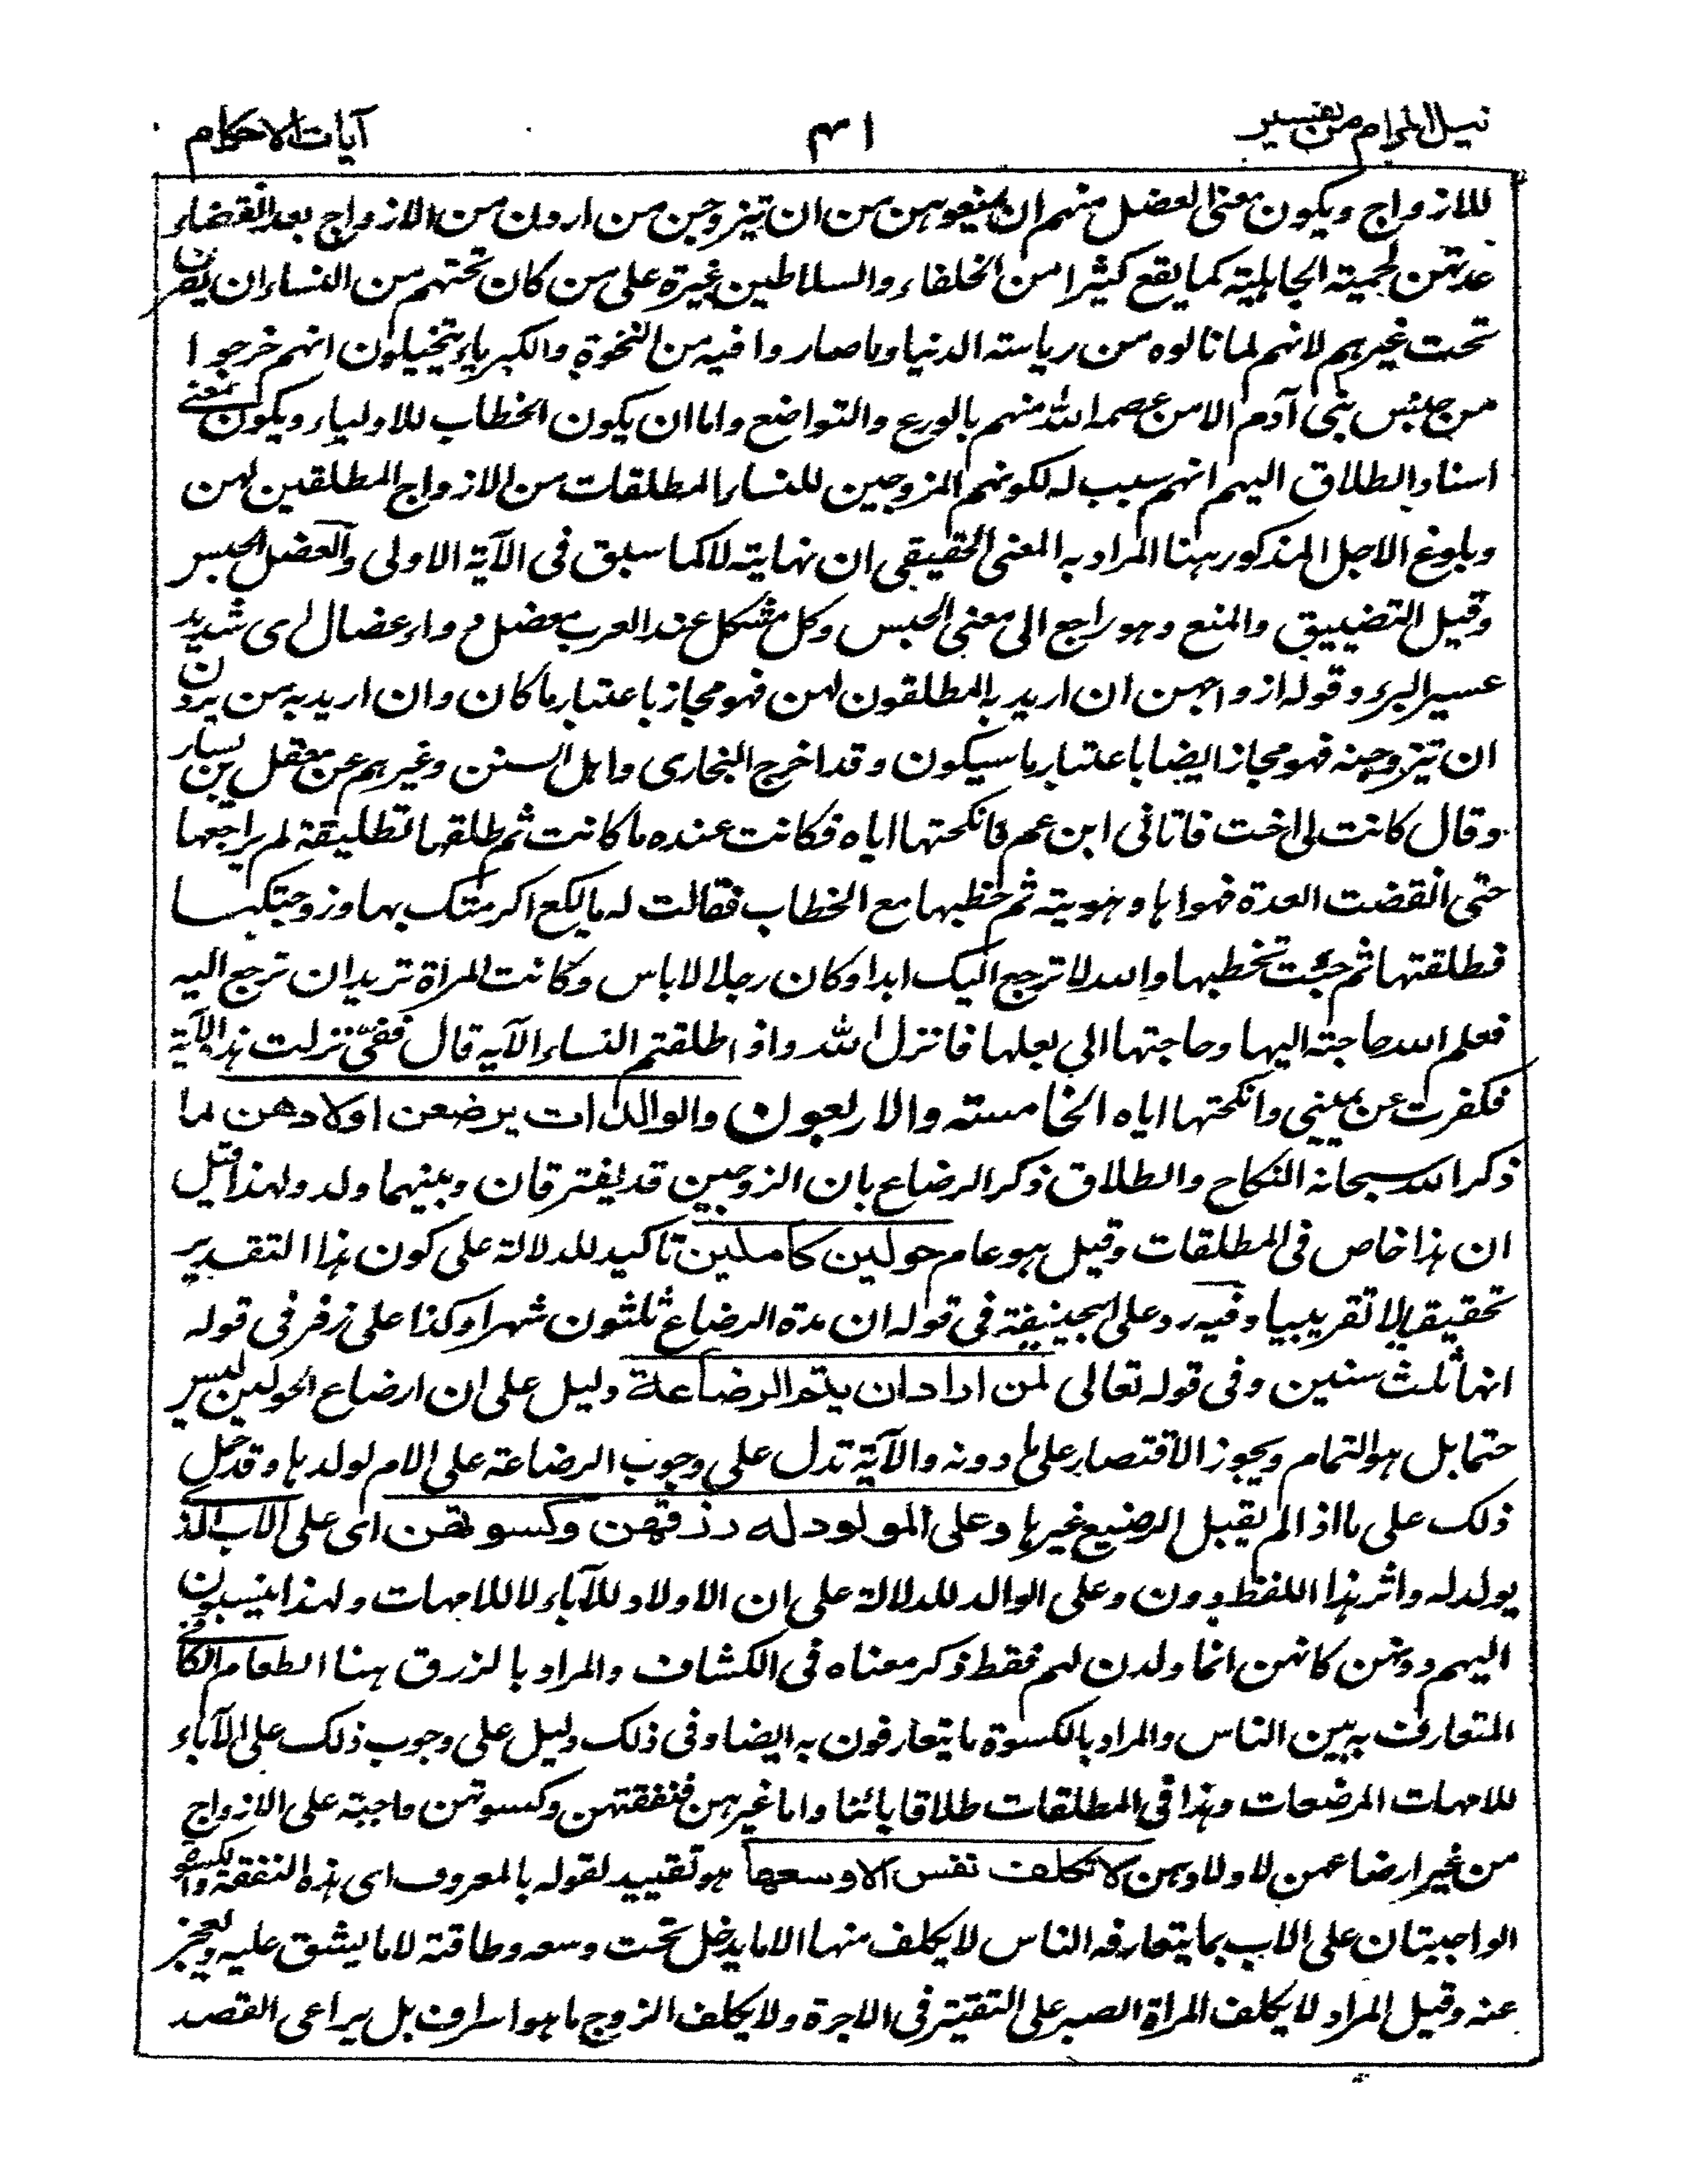 نيل المرام من تفسير
٤١
آيات الاحكام
للازواج ويكون معنى العضل منهم ان يمنعوهن من ان يتزوجن من اردن من الازواج بعد انقضاء
عدتهن لحمية الجاهلية كما يقع كثيرا من الخلفاء والسلاطين غيرة على من كان تحتهم من النساء ان يصرن
تحت غيرهم لانهم لما نالوه من رياسة الدنيا وما صاروا فيه من النخوة والكبرياء يتخيلون انهم خرجوا
من جنس بنى آدم الا من عصمه الله منهم بالورع والتواضع واما ان يكون الخطاب للاولياء ويكون معنى
اسناد الطلاق اليهم انهم سبب له لكونهم المزوجين للنساء المطلقات من الازواج المطلقين لهن
وبلوغ الاجل المذكور ههنا المراد به المعنى الحقيقى ان نهايته لا كما سبق فى الآية الاولى والعضل الحبس
وقيل التضييق والمنع وهو راجع الى معنى الحبس وكل مشكل عند العرب معضل وداء عضال اى شديد
عسير البرء وقوله ازواجهن ان اريد به المطلقون لهن فهو مجاز باعتبار ما كان وان اريد به من يردن
ان يتزوجنه فهو مجاز ايضا باعتبار ما سيكون وقد اخرج البخارى واهل السنن وغيرهم عن معقل بن يسار
وقال كانت لى اخت فاتانى ابن عم فانكحتها اياه فكانت عنده ما كانت ثم طلقها تطليقة لم يراجعها
حتى انقضت العدة فهواها وهويته ثم خطبها مع الخطاب فقالت له يا لكع اكرمتك بها وزوجتكها
فطلقتها ثم جئت تخطبها والله لا ترجع اليك ابدا وكان رجلا لا باس وكانت المراة تريد ان ترجع اليه
فعلم الله حاجته اليها وحاجتها الى بعلها فانزل الله واذا طلقتم النساء الآية قال ففىّ نزلت هذه الآية
فكفرت عن يمينى وانكحتها اياه الخامسة والاربعون والوالدات يرضعن اولادهن لما
ذكر الله سبحانه النكاح والطلاق ذكر الرضاع بان الزوجين قد يفترقان وبينهما ولد ولهذا قيل
ان هذا خاص فى المطلقات وقيل هو عام حولين كاملين تاكيد للدلالة على كون هذا التقدير
تحقيقيا لا تقريبيا وفيه رد على ابيحنيفة فى قوله ان مدة الرضاع ثلثون شهرا وكذا على زفر فى قوله
انها ثلث سنين وفى قوله تعالى لمن اراد ان يتم الرضاعة دليل على ان ارضاع الحولين ليس
حتما بل هو التمام ويجوز الاقتصار على ما دونه والآية تدل على وجوب الرضاعة على الام لولدها وقد حمل
ذلك على ما اذا لم يقبل الرضيع غيرها وعلى المولود له رزقهن وكسوتهن اى على الاب الذى
يولد له واثر هذا اللفظ دون وعلى الوالد للدلالة على ان الاولاد للآباء لا للامهات ولهذا ينسبون
اليهم دونهن كانهن انما ولدن لهم فقط ذكر معناه فى الكشاف والمراد بالرزق هنا الطعام الكافى
المتعارف به بين الناس والمراد بالكسوة ما يتعارفون به ايضا وفى ذلك دليل على وجوب ذلك على الآباء
للامهات المرضعات وهذا فى المطلقات طلاقا بائنا واما غيرهن فنفقتهن وكسوتهن واجبة على الازواج
من غير ارضاعهن لاولادهن لا تكلف نفس الا وسعها هو تقييد لقوله بالمعروف اى هذه النفقة والكسوة
الواجبتان على الاب بما يتعارفه الناس لا يكلف منها الا ما يدخل تحت وسعه وطاقته لا ما يشق عليه ويعجز
عنه وقيل المراد لا يكلف المراة الصبر على التقتير فى الاجرة ولا يكلف الزوج ما هو اسراف بل يراعى القصد